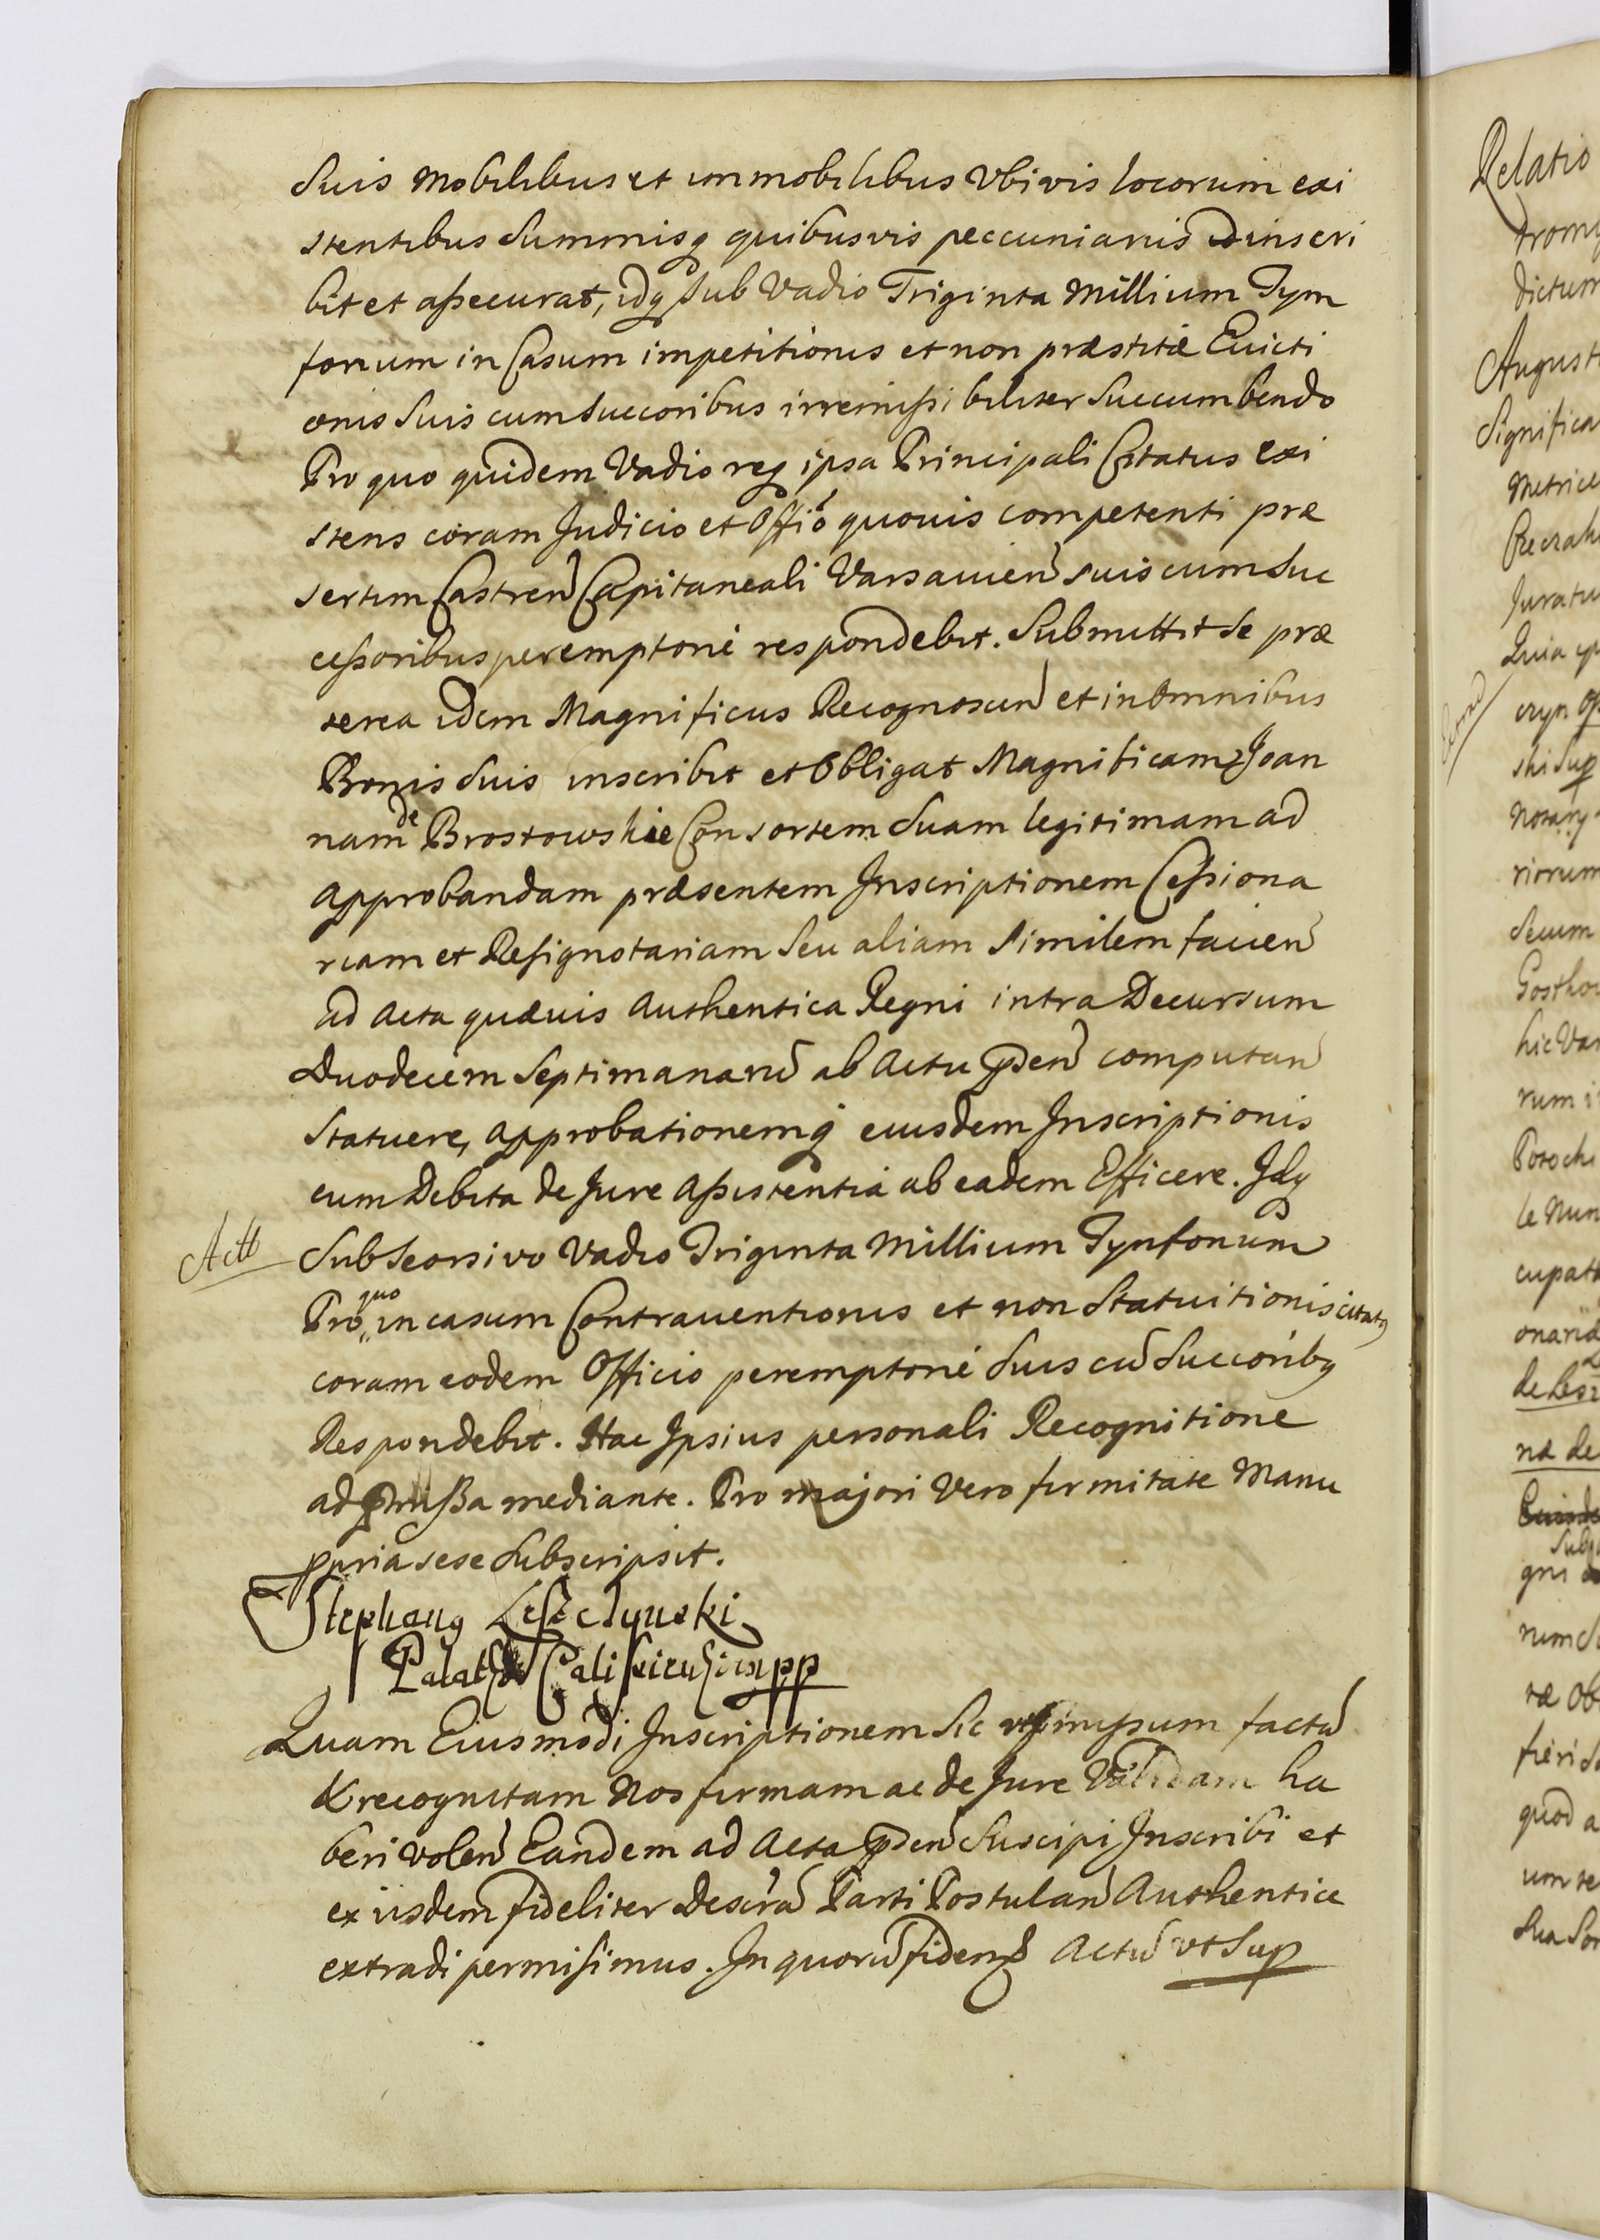 Suis mobilibus et immobilibus Vbivis locorum exi
stentibus Summisq quibusvis peccuniariis inscri
bit et assecurat, idq sub Vadio Triginta Millium Tym
forum in Casum impetitionis et non præstitæ Euicti
onis Suis cum Succoribus irremissibiliter Succumbendo
Pro quo quidem Vadio req ipsa Principali Citatus exi
stens coram Judicio et Offio quouis competenti præ
sertim Castren Capitaneali Varsauien suis cum Suc
cessoribus peremptorie respondebit. Submittit se præ
terea idem Magnificus Recognoscen et in Omnibus
Bonis Suis inscribit et Obligat Magnificam Joan
nam de Brostowskie Consortem Suam legitimam ad
approbandam præsentem Inscriptionem Cessiona
riam et Resignatariam Seu aliam Similem facien
ad Acta quævis Authentica Regni intra Decursum
Duodecim Septimanaru ab Actu pden computan
Statuere, approbationemq eiusdem Inscriptionis
cum Debita de Jure assistentia ab eadem Efficere. Idq
Actt Sub Seorsivo Vadio Triginta Millium Tynforum
Pro quo in casum Contrauentionis et non Statuitionis citatq
coram eodem Officio peremptorie Suis cu Succoribq
Respondebit. Hac Ipsius personali Recognitione
ad pmissa mediante. Pro majori Vero firmitate Manu
ppria sese Subscripsit.
Stephanq Leszczynski
Palat Calissiensis mpp
Quam Eiusmodi Inscriptionem Sic factu
& recognitam Nos firmam ac de Jure Validam ha
beri volen Eandem ad Acta pden Suscipi Inscribi et
ex iisdem fideliter Descra Parti Postulan Authentice
extradi permisimus. In quoru fidem Actu vt Sup
Relatio
Augusti
Significa
metrice
Juratu
Quia
ski Sup
riorum
secum
hic Var
rum i
le Nun
næ de
gni
tæ Ob
quod a